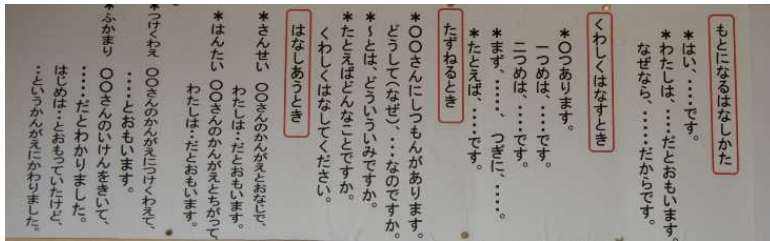 もとになるはなしかた
*はい、‥‥です。
*わたしは、‥‥だとおもいます。
なぜなら、‥‥‥だからです。
くわしくはなすとき
*〇つあります。
一つめは、‥‥です。
二つめは、‥‥です。
*まず、‥‥‥、つぎに、‥‥‥。
*たとえば、‥‥‥です。
たずねるとき
*〇〇さんにしつもんがあります。
どうして(なぜ)、‥‥なのですか。
*～とは、どういういみですか。
*たとえばどんなことですか。
くわしくはなしてください。
はなしあうとき
*さんせい 〇〇さんのかんがえとおなじで、
わたしは‥だとおもいます。
*はんたい 〇〇さんのかんがえとちがって
わたしは‥だとおもいます。
*つけくわえ 〇〇さんのかんがえにつけくわえて、
‥‥とおもいます。
*ふかまり 〇〇さんのいけんをきいて、
‥‥‥だとわかりました。
はじめは‥とおもっていたけど、
‥というかんがえにかわりました。